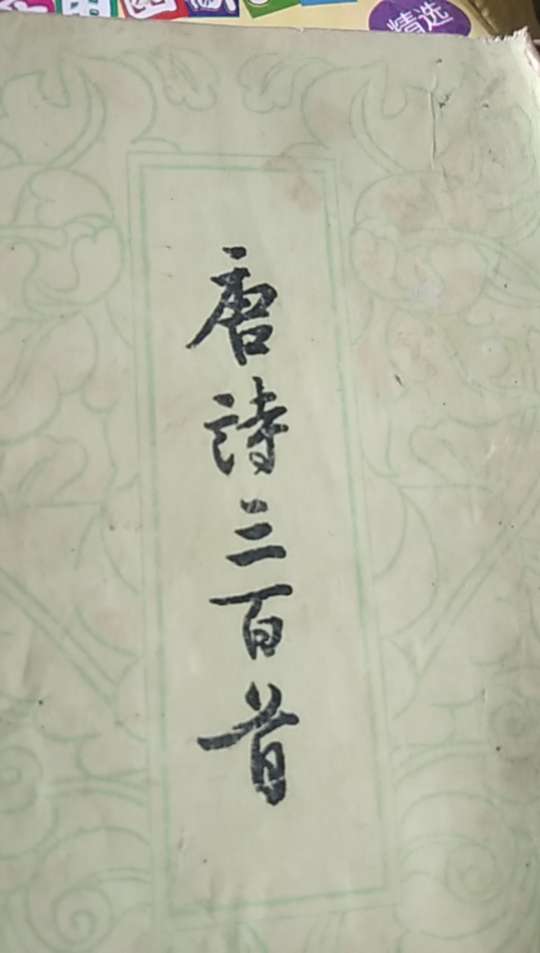 精选
唐詩三百首